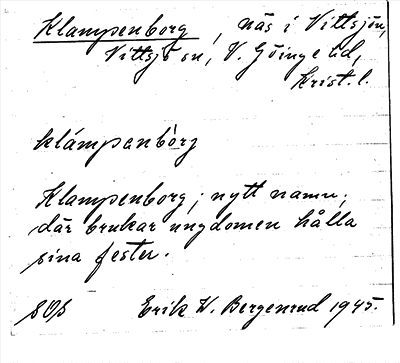 Klampenborg, näs i Vittsjön,
Vittsjö sn, V. Göinge hd,
Krist. l.
klámpenbòrj
Klampenborg; nytt namn;
där brukar ungdomen hålla
sina fester.
Erik W. Bergenrud 1945.